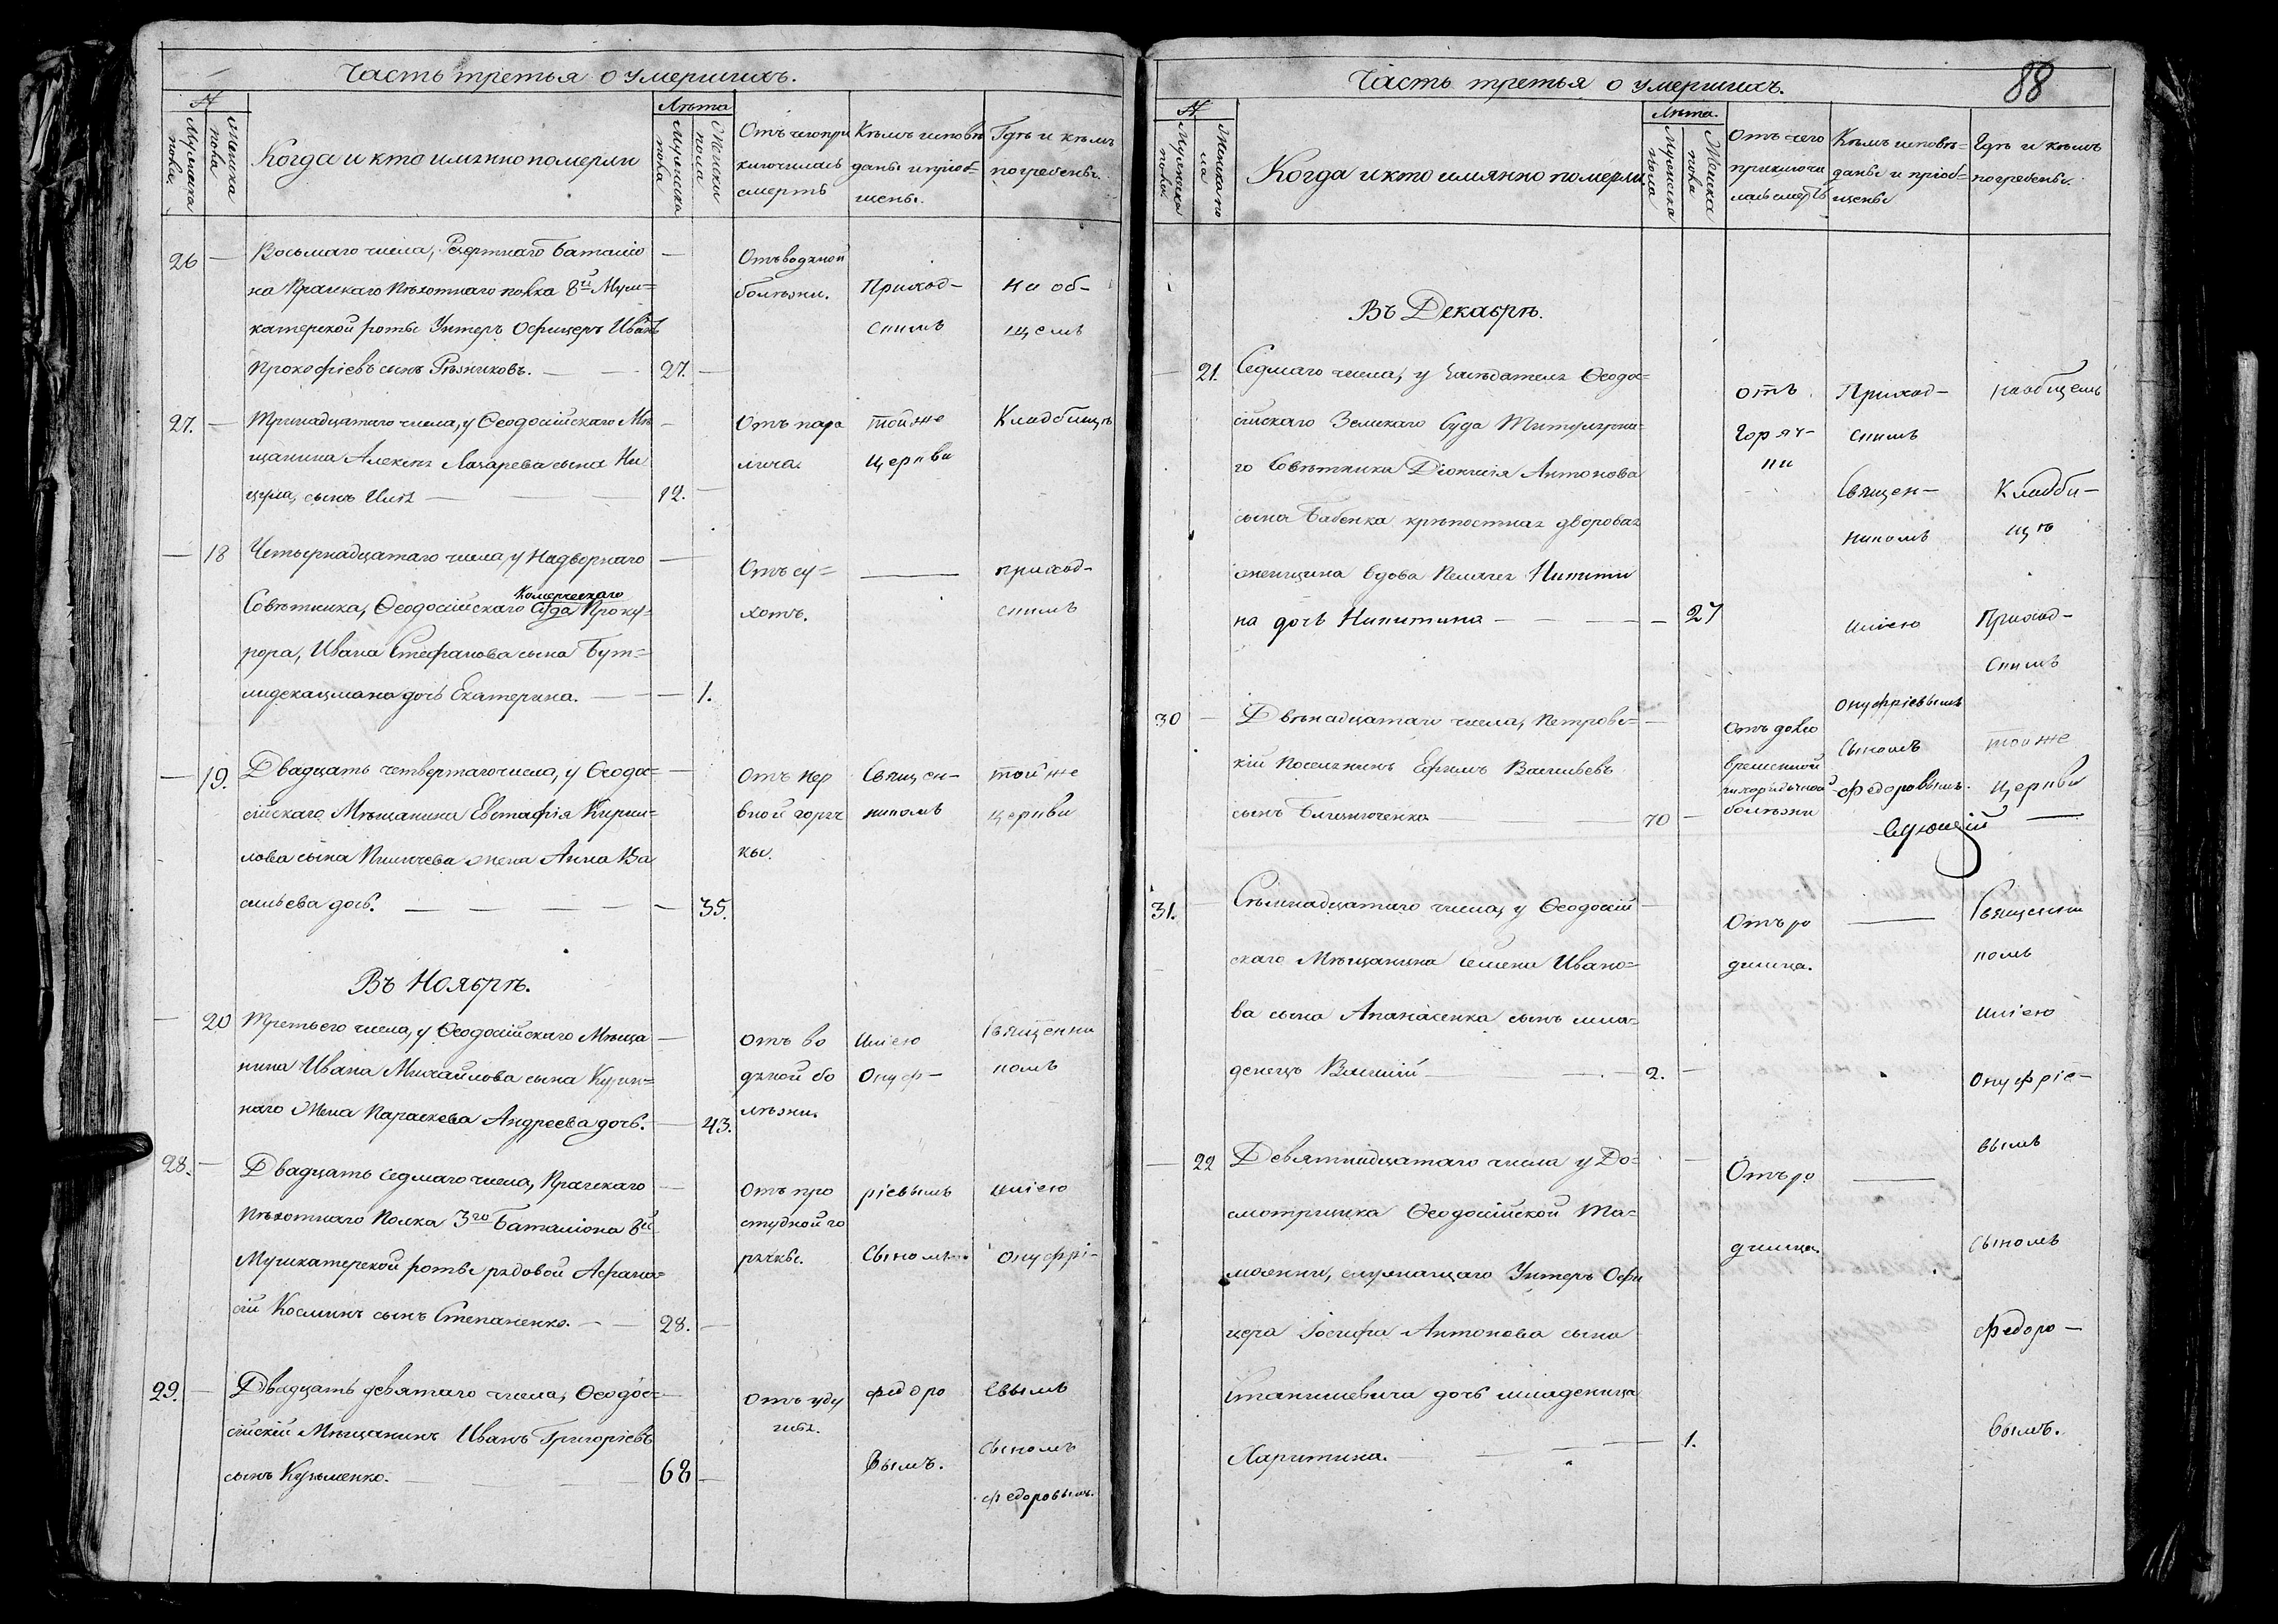 Часть третья о умершихъ.
№
Мужеска пола.
Женска пола
Когда и кто имянно померли
Лѣта
Мужеска пола
Женска пола
Отъ чего при
ключилась
смерть
Кѣмъ исповѣ
даны и приоб=
щены.
Гдѣ и кѣмъ
погребены.
26 — Восьмаго числа, Резервнаго Баталiо —
на Пражскаго Пѣхотнаго полка 8й Муш=
катерской роты Унтеръ Офицеръ Иванъ
Прокофiевъ сынъ Рѣзниковъ. — — 27. —
Отъ водяной
болѣзни.
Приход-
скимъ
На об-
щемъ
27. — Тринадцатаго числа, у Ѳеодосiйскаго Мѣ —
щанина Алексея Лазарева сына Ни
цула, сынъ Илiя — — — 12. —
Отъ пара
лича.
тойже
Церкви
Кладбищѣ
— 18 Четырнадцатаго числа у Надворнаго —
Комерческаго
Совѣтника, Ѳеодосiйскаго Суда Проку=
рора, Ивана Стефанова сына Бут=
мидекацмана дочь Екатерина. — — 1.
Отъ су=
хотъ.
—
приход-
скимъ
— 19. Двадцать четвертаго числа, у Ѳеодо= —
сiйскаго Мѣщанина Евстафiя Кирил=
лова сына жена Анна Ва
сильева дочь. — — — — — 35.
Отъ нер
вной горяч
кы.
Священ-
никомъ
тойже
церкви
Въ Ноябрѣ.
— 20 Третьего числа, у Ѳеодосiйскаго Мѣща —
нина Ивана Михайлова сына
наго Жена Параскева Андреева дочь. — 43.
отъ во
дяной бо
лѣзни.
Илiею
Онуф-
Священни
комъ
28. — Двадцать седмаго числа, Пражскаго —
Пѣхотнаго Полка 3го Баталiона 8й
Мушкатерской роты рядовой Афана=
сiй Косминъ сынъ Степаненко. — — 28. —
Отъ про
студной го
рячкы.
рiевымъ
Сыномъ
Илiею
Онуфрi-
29. — Двадцать девятаго числа, Ѳеодо= —
сiйскiй Мѣщанинъ Иванъ Григорiевъ
сынъ Кузменко. — — — 68 —
Отъ уду
шья.
Федоро
вымъ.
евымъ
Сыномъ
Федоровымъ.
Часть третья о умершихъ.
88
№
Мужеска пола.
Женска по
ла
Когда и кто имянно померли.
Лѣта.
Мужеска пола
Женска пола
Отъ чего
приключи
лась смерть
Кѣмъ исповѣ=
даны и приоб=
щены
Гдѣ и кѣмъ
погребены.
Въ Декабрѣ.
— 21. Седмаго числа, у Засѣдателя Ѳеодо=
сiйскаго Земскаго Суда Титулярна=
го Совѣтника Дiонисiя Антонова
сына Бабенка крѣпостная дворовая
женщина вдова Пелагея Никити
на дочь Никитина — — — — 27
отъ
Горяч-
ки
Приход-
скимъ
Священ-
никомъ
Илiею
наобщемъ
Кладби-
щѣ
Приход-
скимъ
30 — Двѣнадцатаго числа, Петровс= —
кiй Поселянинъ Ефимъ Васильевъ
сынъ — — 70 —
Отъ долго
временной
болѣзни
Онуфрiевымъ
Сыномъ
Федоровымъ.
тойже
Церкви
—
31. — Сѣмнадцатаго числа, у Ѳеодосiй —
скаго Мѣщанина Семена Ивано=
ва сына Апанасенка сынъ мла=
денецъ Василiй — — 2. —
Отъ ро
димца.
—
Священни
комъ
Илiею
Онуфрiе-
вымъ
— 22 Девятнадцатаго числа у До= —
смотрщика Ѳеодосiйской Та=
можни, служащаго Унтеръ Офи
цера Iосифа Антонова сына
Станишевича дочь младеница
Харитина. — — — 1.
Отъ ро
димца.
—
Сыномъ
Федоро-
вымъ.